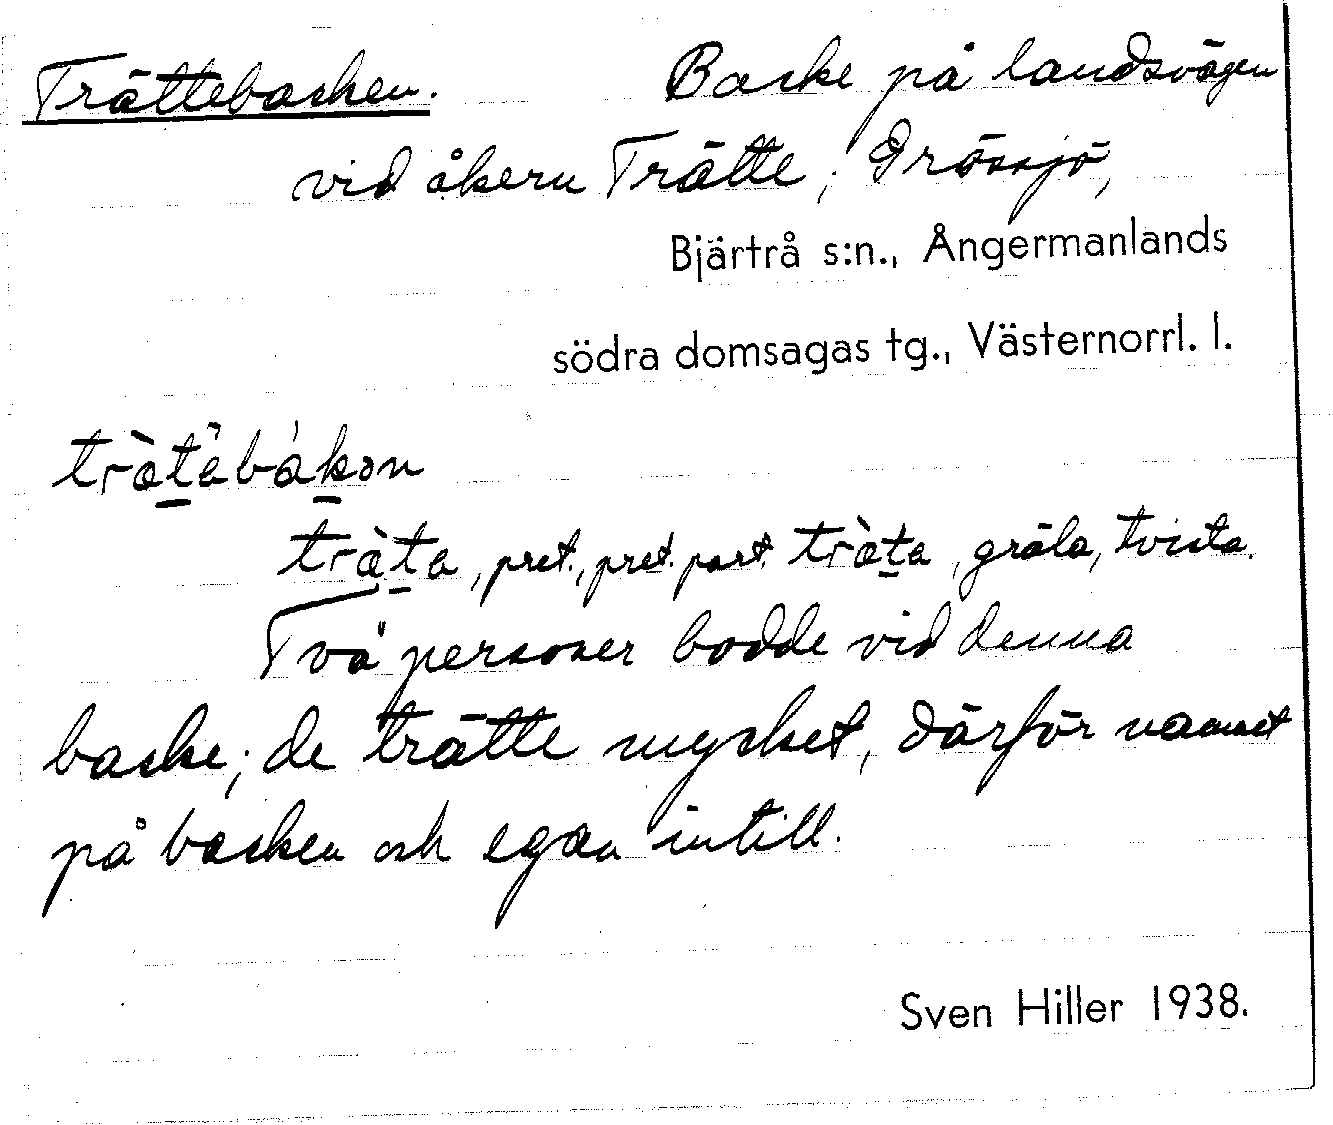 Trättebacken. Backe på landsvägen
vid åkern Trätte, Grössjö,
Bjärtrå s:n., Ångermanlands
södra domsagas tg., Västernorrl. l.
tràtabákən
tràta, pret., pret. part. tràta, gräla, tvista.
Två personer bodde vid denna
backe; de trätte mycket, därför namnet
på backen och egan intill.
Sven Hiller 1938.